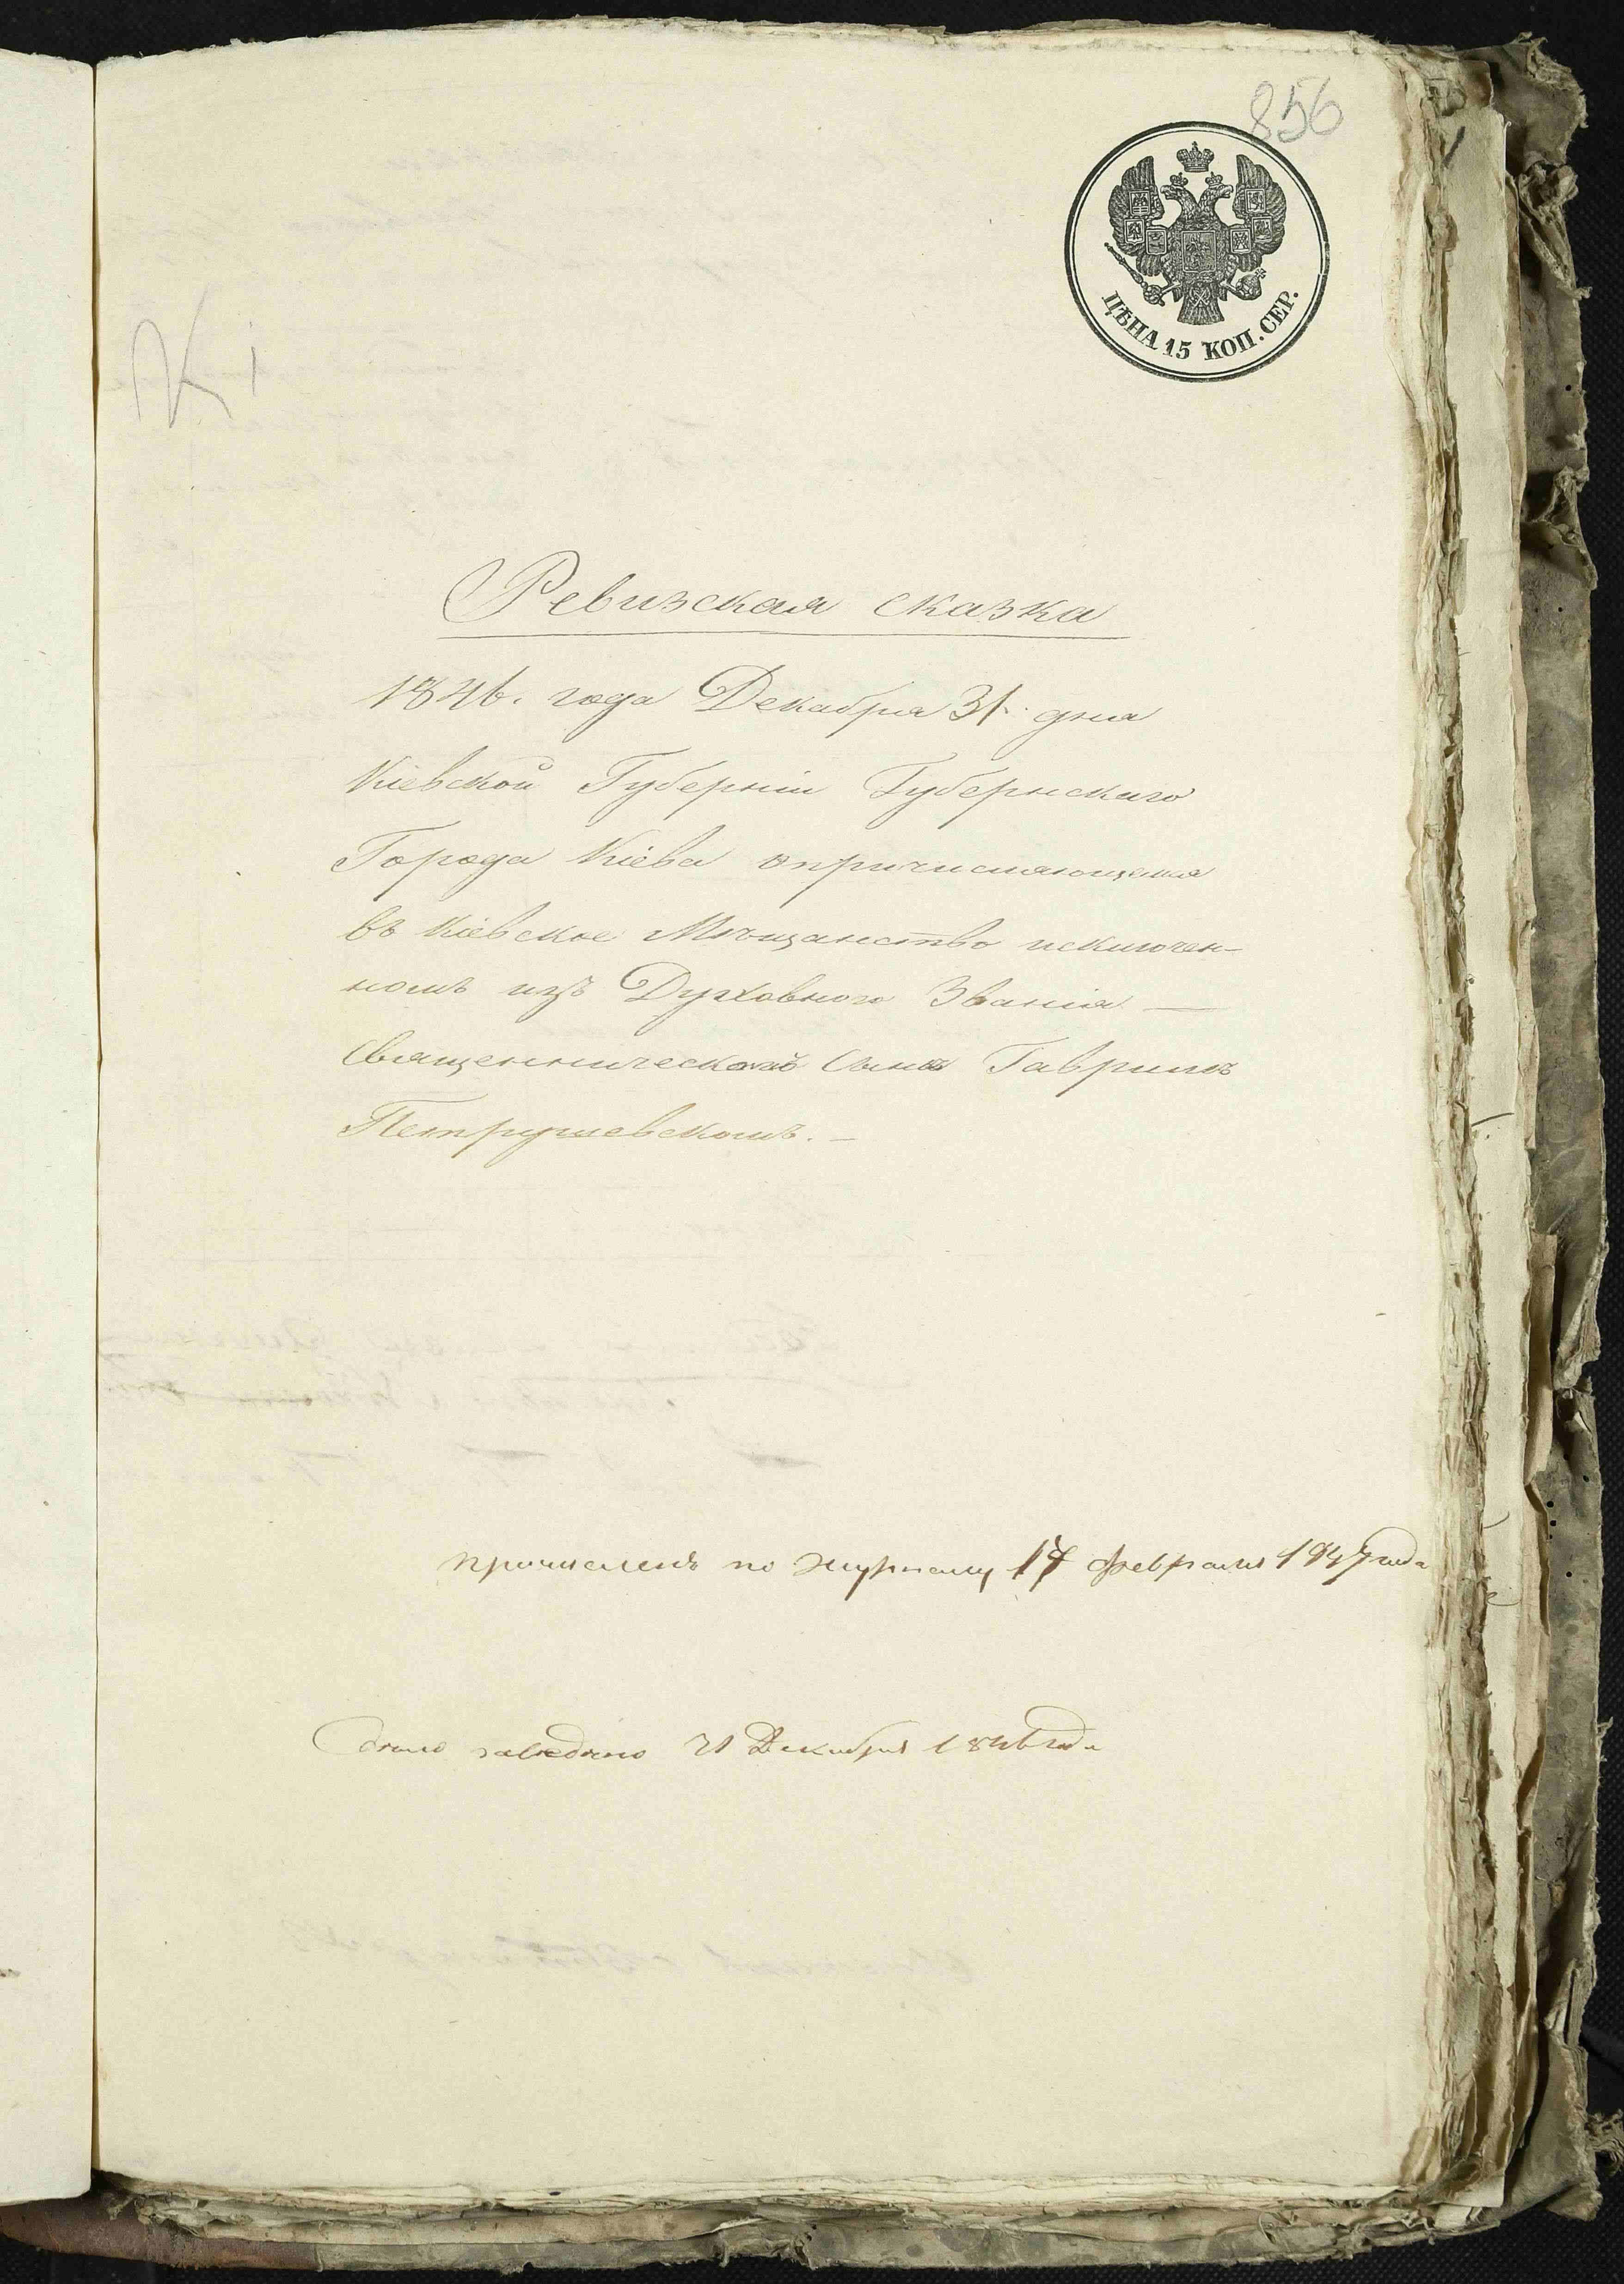 856
ЦѢНА 15 КОП. СЕР.
К 1
Ревизская сказка
1846. года Декабря 31. дня
Кіевской Губерніи Губернскаго
Города Кіева опричисляющемся
въ Кіевское Мѣщанство исключен-
номъ изъ Духовного Званія —
Священническомъ Сынѣ Гаврилѣ
Петрушевскомъ. —
причисленъ по журналу 17 февраля 1847 года
Дѣло заведено 31 Декабря 1846 года